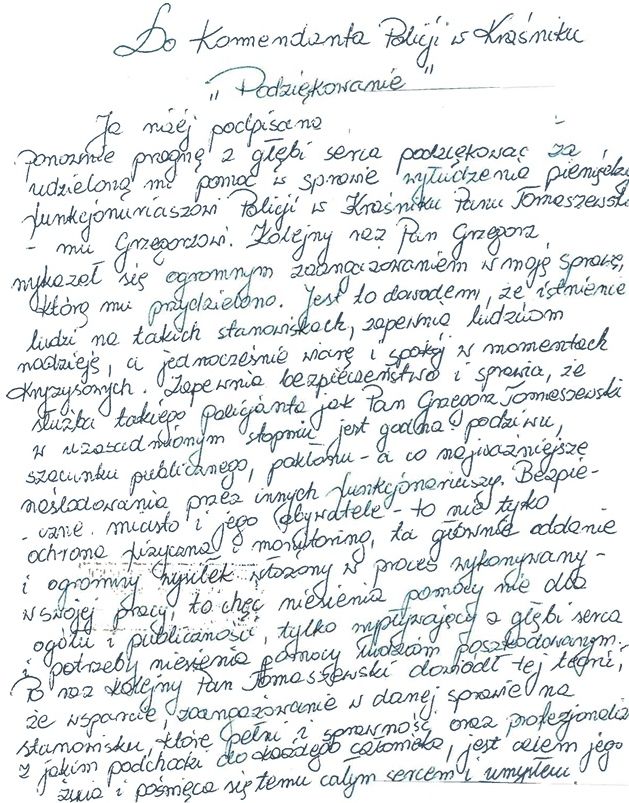 Do Komendanta Policji w Kraśniku
"Podziękowanie"
Ja niżej podpisana
ponownie pragnę z głębi serca podziękować za
udzieloną mi pomoc w sprawie wyłudzenia pieniędzy
funkcjonariuszowi Policji w Kraśniku Panu Tomaszewskie
- mu Grzegorzowi. Kolejny raz Pan Grzegorz
wykazał się ogromnym zaangażowaniem w moją sprawę,
którą mu przydzielono. Jest to dowodem, że istnienie
ludzi na takich stanowiskach, zapewnia ludziom
nadzieję, a jednocześnie wiarę i spokój w momentach
kryzysowych. Zapewnia bezpieczeństwo i sprawia, że
służba takiego policjanta jak Pan Grzegorz Tomaszewski
w uzasadnionym stopniu jest godna podziwu,
szacunku publicznego, pokłonu - a co najważniejsze
naśladowania przez innych funkcjonariuszy. Bezpie-
- czne miasto i jego obywatele - to nie tylko
ochrona fizyczna i monitoring, to głównie oddanie
i ogromny wysiłek włożony w proces wykonywany -
w swojej pracy, to chęć niesienia pomocy nie dla
ogółu i publiczności, tylko wypływającej z głębi serca
i potrzeby niesienia pomocy ludziom poszkodowanym.
Po raz kolejny Pan Tomaszewski dowiódł tej teorii,
że wsparcie, zaangażowanie w danej sprawie na
stanowisku, które pełni i sprawność oraz profesjonalizm
z jakim podchodzi do każdego człowieka, jest celem jego
życia i poświęca się temu całym sercem i umysłem.